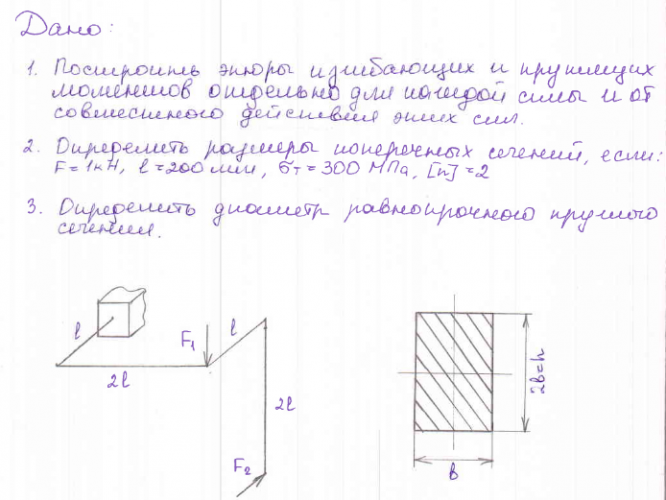 Дано:
1. Построить эпюры изгибающих и крутящих
моментов отдельно для каждой силы и от
совместного действия этих сил.
2. Определить размеры поперечных сечений, если:
F=1кН, l=200мм, σт=300 МПа, [n]=2
3. Определить диаметр равнопрочного круглого
сечения.
l
F1
l
2l
2l
F2
2в=h
в